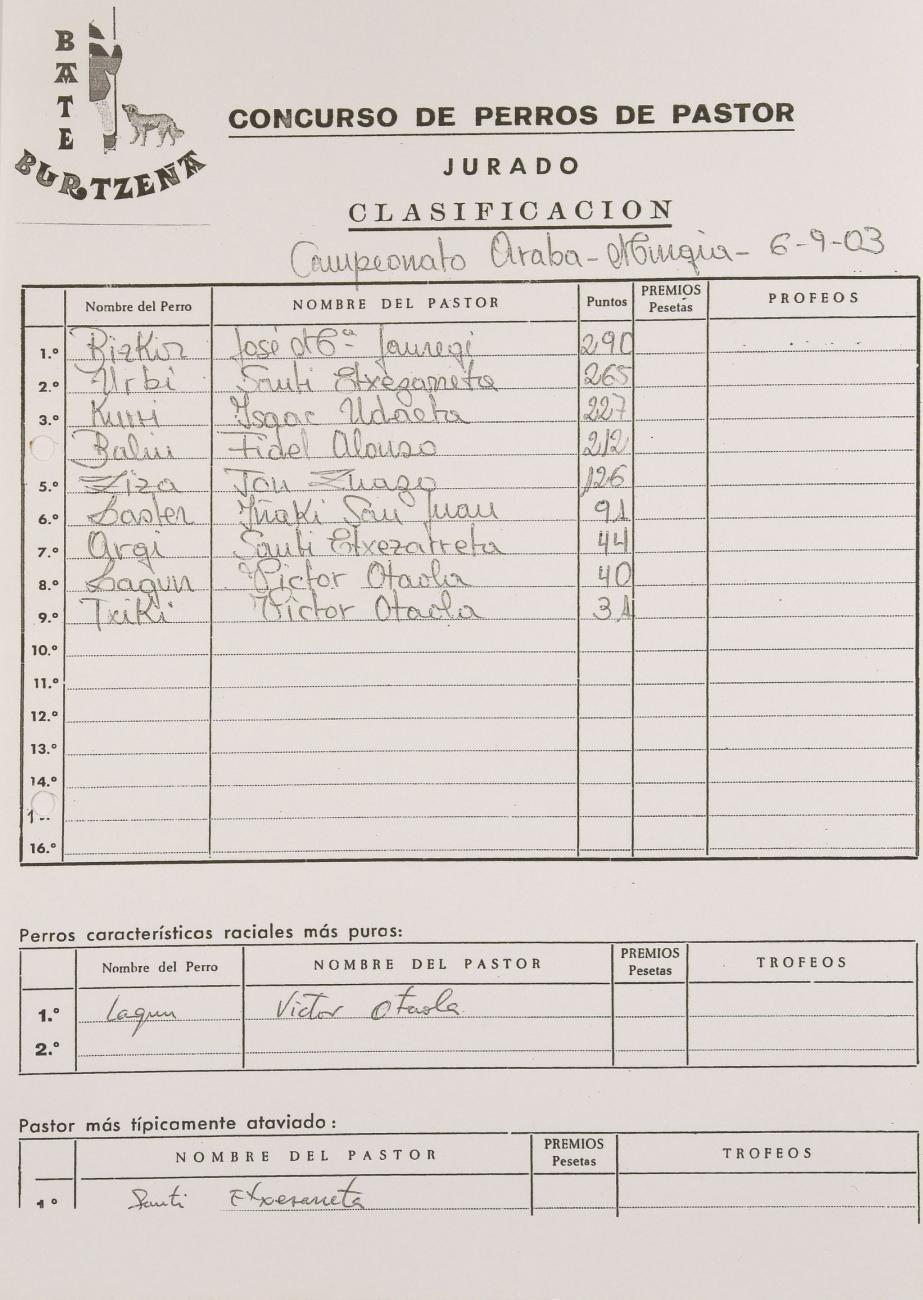 BATE
BURTZEÑA
CONCURSO DE PERROS DE PASTOR
JURADO
CLASIFICACION
Campeonato Araba - Mungia - 6-9-03
Nombre del Perro NOMBRE DEL PASTOR Puntos PREMIOS Pesetas PROFEOS
1.º Bizkor José Mª Jauregi 290
2.º Urbi Santi Etxezarreta 265
3.º Kurri Isaac Udaeta 227
Balui Fidel Alonso 212
5.º Ziza Jon Zuazo 126
6.º Laster Iñaki San Juan 91
7.º Argi Santi Etxezarreta 44
8.º Lagun Victor Otaola 40
9.º Txiki Victor Otaola 31
10.º
11.º
12.º
13.º
14.º
1
16.º
Perros características raciales más puras:
Nombre del Perro NOMBRE DEL PASTOR PREMIOS Pesetas TROFEOS
1.º Lagun Victor Otaola
2.º
Pastor más típicamente ataviado:
NOMBRE DEL PASTOR PREMIOS Pesetas TROFEOS
1º Santi Etxesarreta